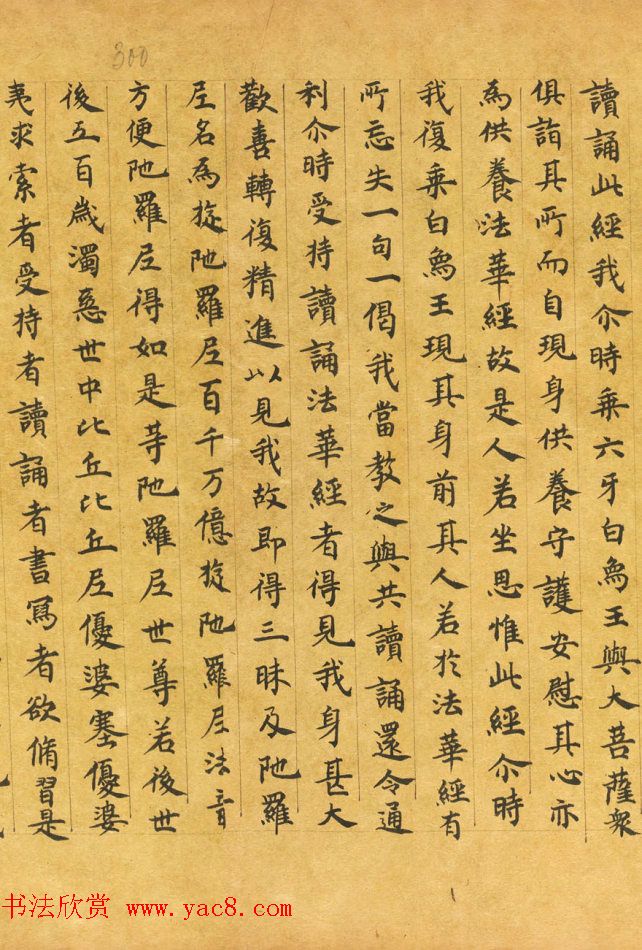 300
讀誦此經我尒時乘六牙白象王與大菩薩衆
俱詣其所而自現身供養守護安慰其心亦
為供養法華經故是人若坐思惟此經尒時
我復乘白象王現其身前其人若於法華經有
所忘失一句一偈我當教之與共讀誦還令通
利尒時受持讀誦法華經者得見我身甚大
歡喜轉復精進以見我故即得三昧及陁羅
尼名為旋陁羅尼百千万億旋陁羅尼法音
方便陁羅尼得如是等陁羅尼世尊若後世
後五百歲濁惡世中比丘比丘尼優婆塞優婆
夷求索者受持者讀誦者書寫者欲脩習是
书法欣赏 www.yac8.com